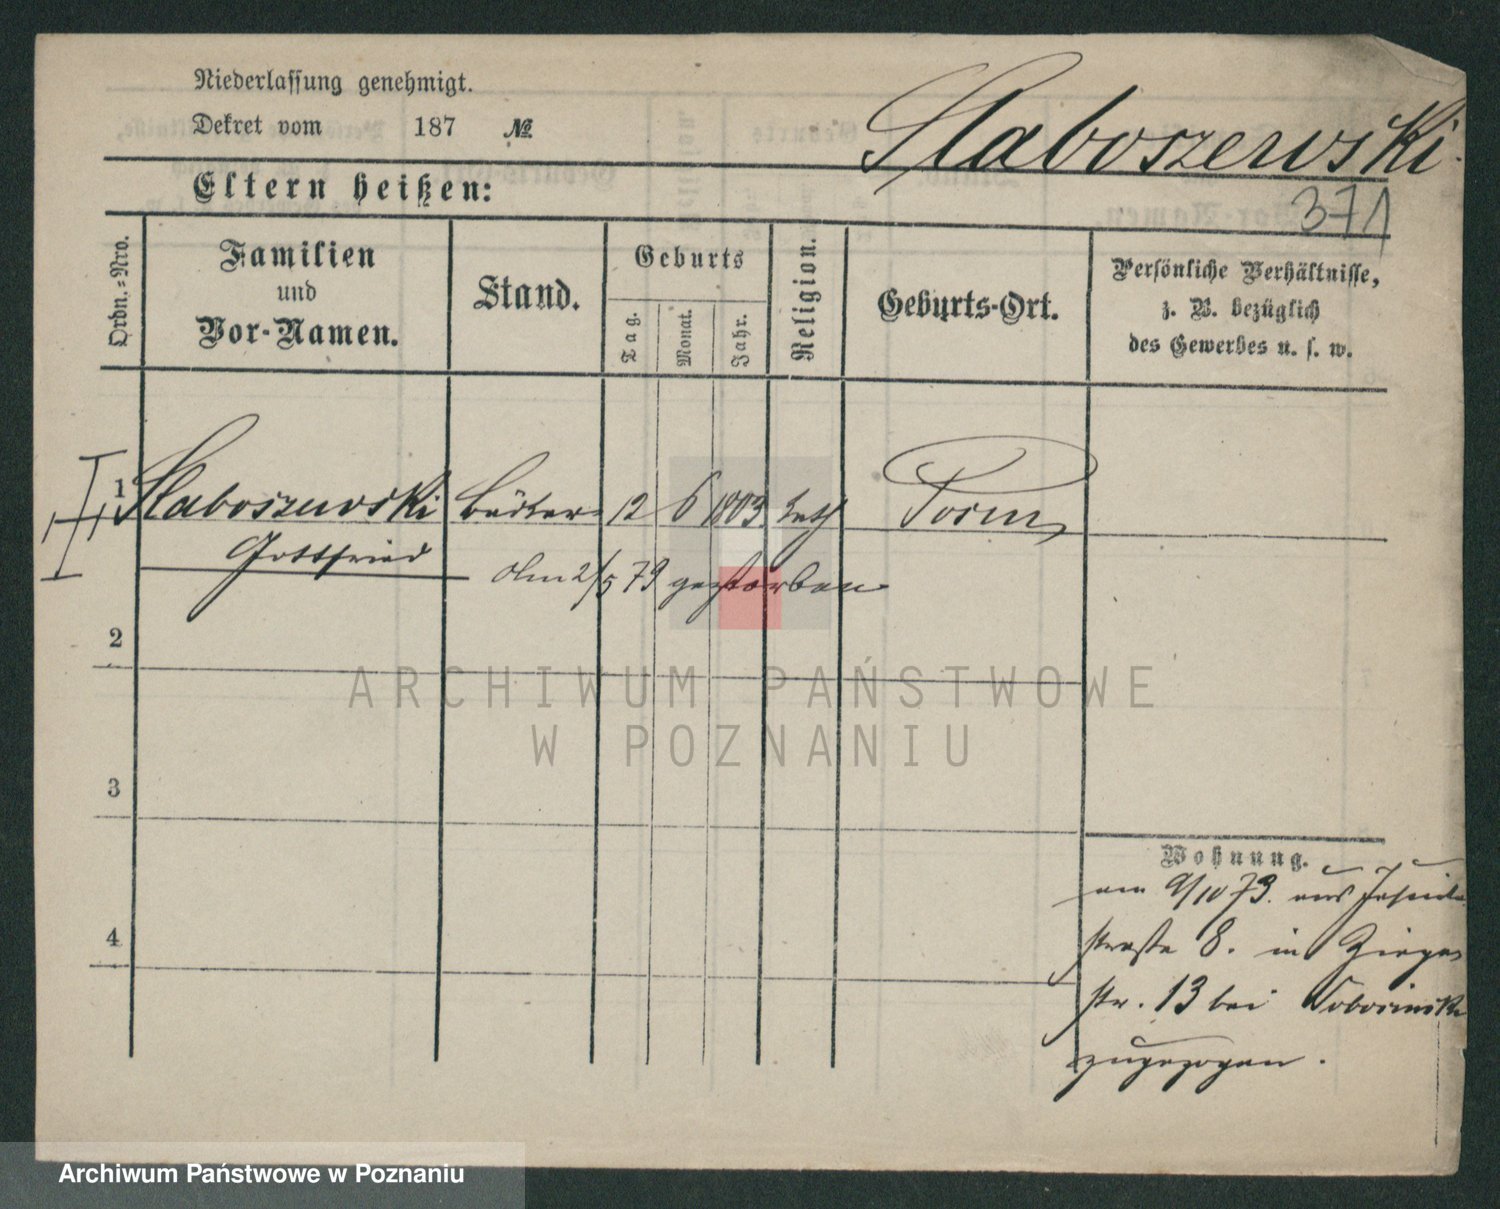 Niederlassung genehmigt.
Dekret vom 187 №
Slaboszewski.
Eltern heißen:
371
Ordn.-Nro.
Familien
und
Vor-Namen.
Stand.
Geburts
Tag.
Monat.
Jahr.
Religion.
Geburts-Ort.
Persönliche Verhältnisse,
z. B. bezüglich
des Gewerbes u. s. w.
1 Slaboszewski Bäcker 12 6 1803 kath Posen
Gottfried
Am 2/5 79 gestorben
2
ARCHIWUM PAŃSTWOWE
W POZNANIU
3
4
Wohnung.
am 9/10 73. aus Jesuiten
straße 8. in Ziegen
str. 13 bei
zugezogen.
Archiwum Państwowe w Poznaniu